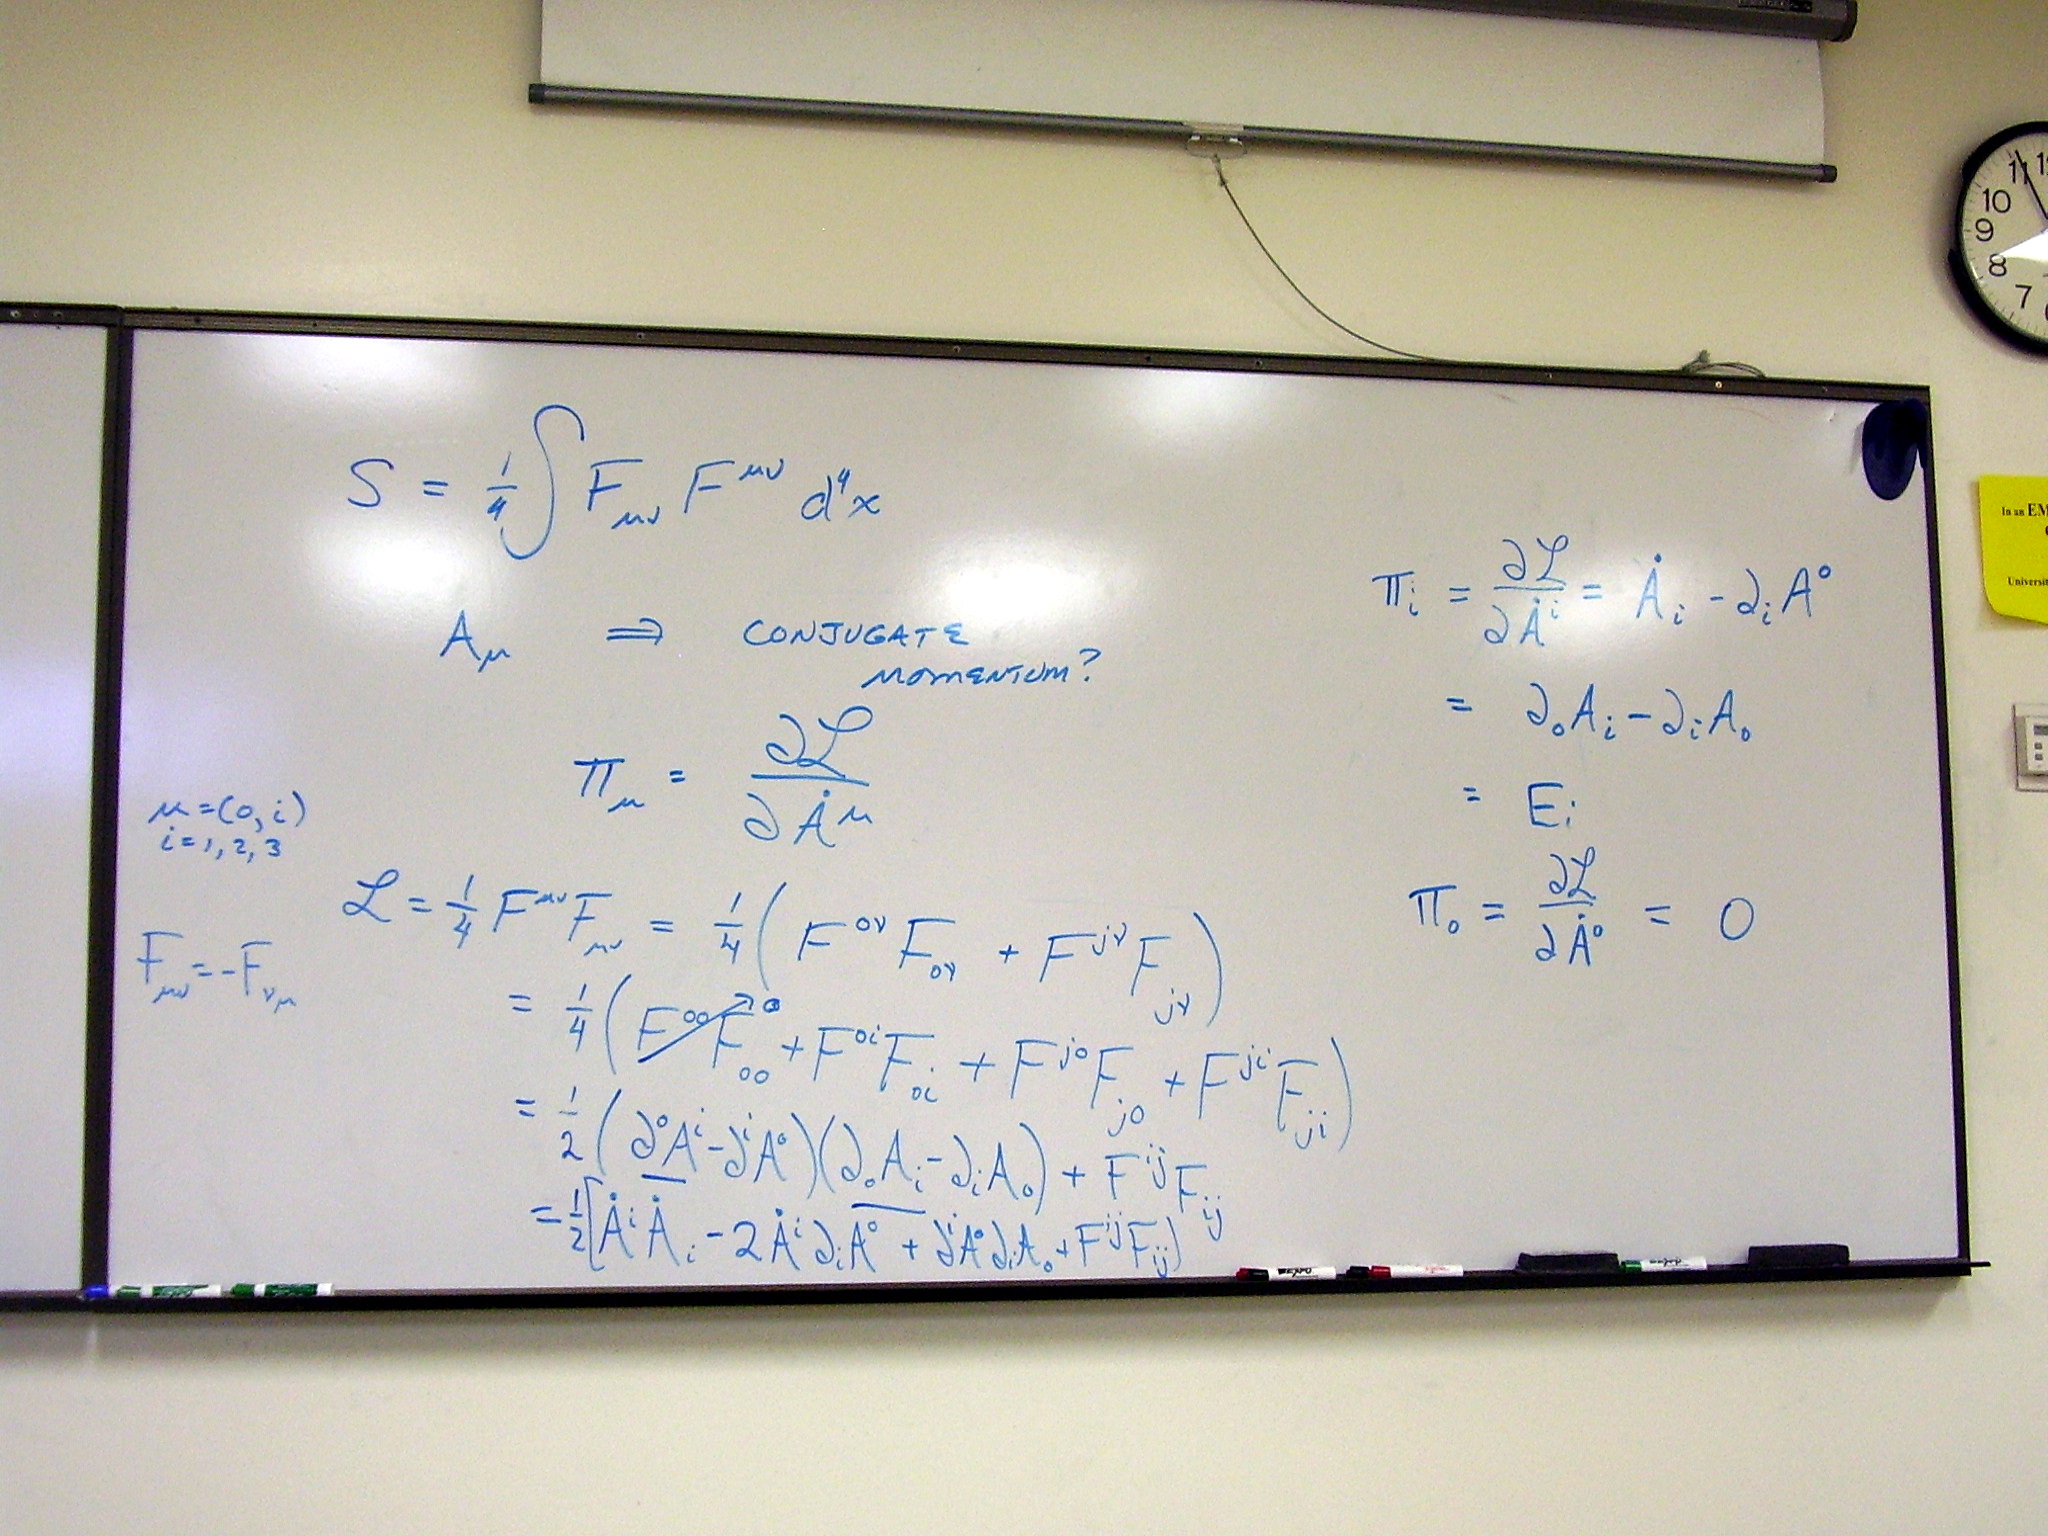 S = 1/4 ∫ F_μν F^μν d⁴x
A_μ ⇒ CONJUGATE
MOMENTUM?
π_μ = ∂ℒ/∂Ȧ^μ
μ=(0,i)
i=1,2,3
F_μν = -F_νμ
ℒ = 1/4 F^μν F_μν = 1/4 ( F^0ν F_0ν + F^jν F_jν )
= 1/4 ( F^00 F_00 → 0 + F^0i F_0i + F^j0 F_j0 + F^ji F_ji )
= 1/2 ( ∂^0 A^i - ∂^i A^0 )( ∂_0 A_i - ∂_i A_0 ) + F^ij F_ij
= 1/2 [ Ȧ^i Ȧ_i - 2 Ȧ^i ∂_i A^0 + ∂^i A^0 ∂_i A_0 + F^ij F_ij )
π_i = ∂ℒ/∂Ȧ^i = Ȧ_i - ∂_i A^0
= ∂_0 A_i - ∂_i A_0
= E_i
π_0 = ∂ℒ/∂Ȧ^0 = 0
11
10
9
8
7
In an EM
Universit
EXPO
EXPO